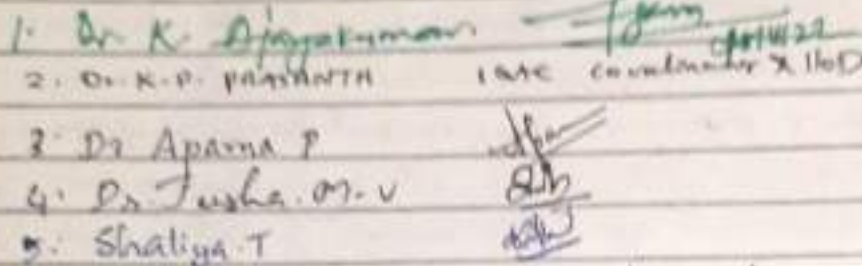 1. Dr K. Ajayakumar
2. Dr. K.P. PRASANTH IQAC Coordinator & HoD
3. Dr Aparna P
4. Dr. Jusha. M. V
5. Shaliya. T